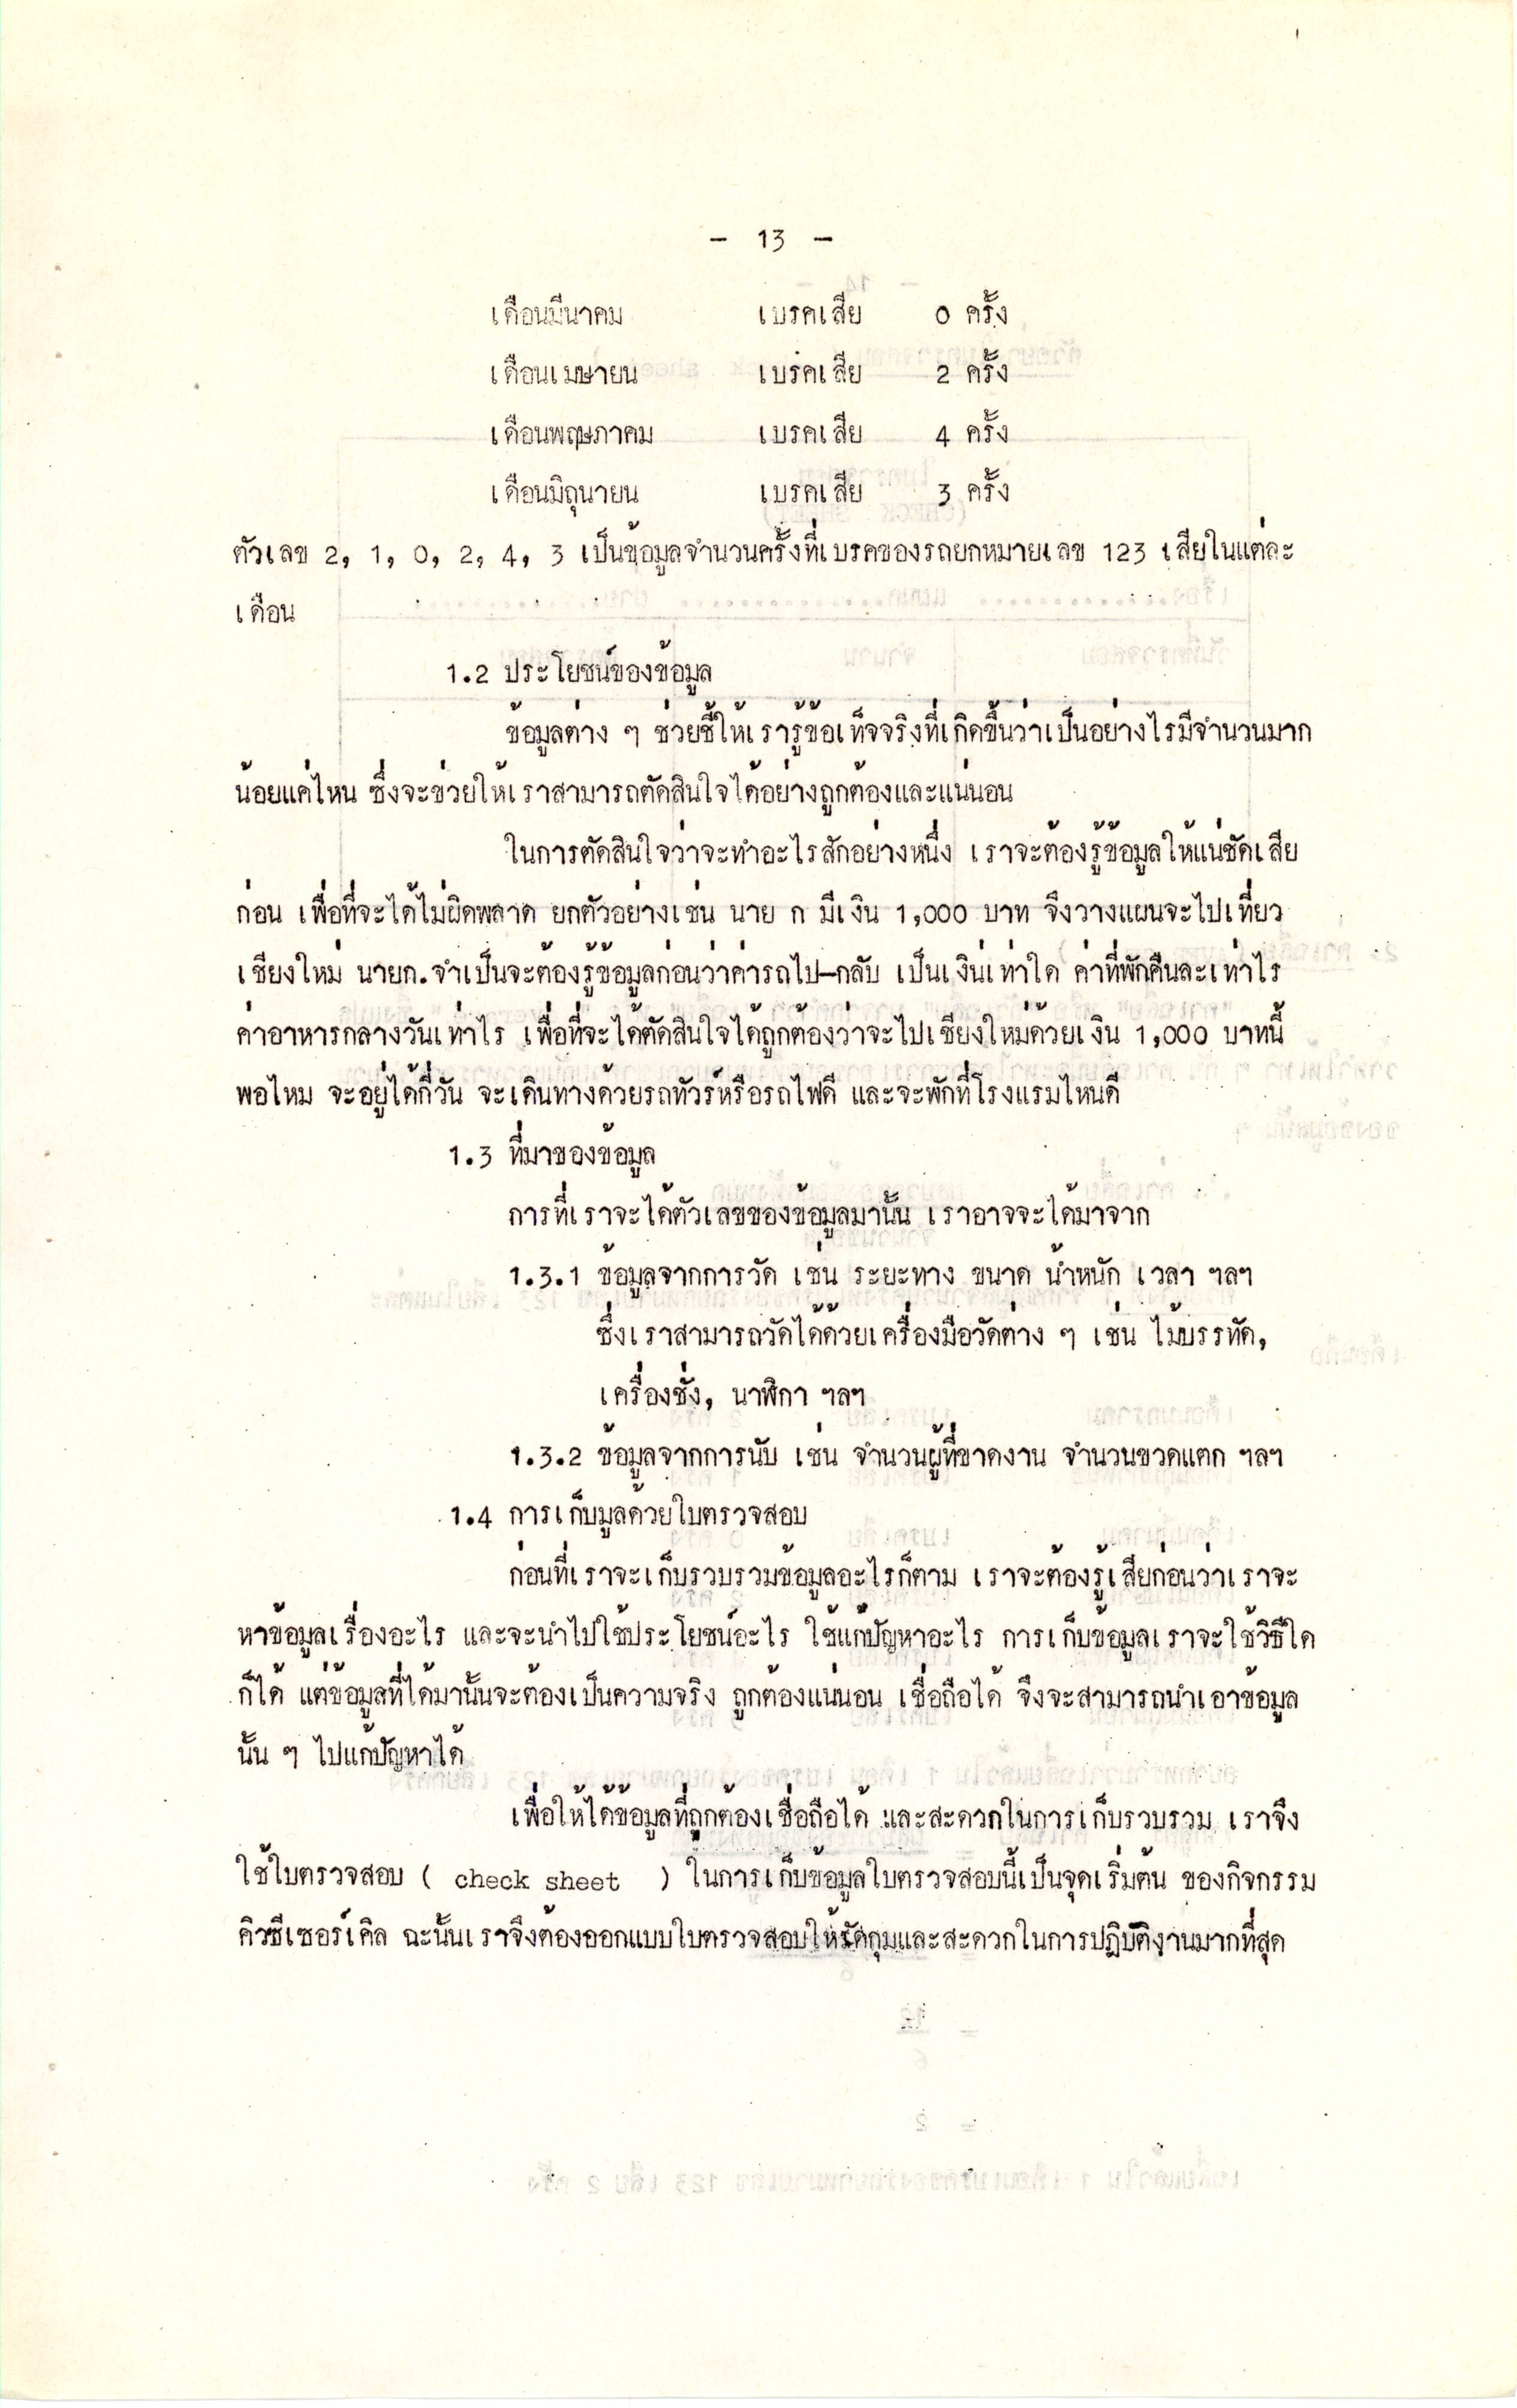 - 13 -
เดือนมีนาคม เบรคเสีย 0 ครั้ง
เดือนเมษายน เบรคเสีย 2 ครั้ง
เดือนพฤษภาคม เบรคเสีย 4 ครั้ง
เดือนมิถุนายน เบรคเสีย 3 ครั้ง
ตัวเลข 2, 1, 0, 2, 4, 3 เป็นข้อมูลจำนวนครั้งที่เบรคของรถยกหมายเลข 123 เสียในแต่ละ
เดือน
1.2 ประโยชน์ของข้อมูล
ข้อมูลต่าง ๆ ช่วยชี้ให้เรารู้ข้อเท็จจริงที่เกิดขึ้นว่าเป็นอย่างไรมีจำนวนมาก
น้อยแค่ไหน ซึ่งจะช่วยให้เราสามารถตัดสินใจได้อย่างถูกต้องและแน่นอน
ในการตัดสินใจว่าจะทำอะไรสักอย่างหนึ่ง เราจะต้องรู้ข้อมูลให้แน่ชัดเสีย
ก่อน เพื่อที่จะได้ไม่ผิดพลาด ยกตัวอย่างเช่น นาย ก มีเงิน 1,000 บาท จึงวางแผนจะไปเที่ยว
เชียงใหม่ นายก.จำเป็นจะต้องรู้ข้อมูลก่อนว่าค่ารถไป-กลับ เป็นเงินเท่าใด ค่าที่พักคืนละเท่าไร
ค่าอาหารกลางวันเท่าไร เพื่อที่จะได้ตัดสินใจได้ถูกต้องว่าจะไปเชียงใหม่ด้วยเงิน 1,000 บาทนี้
พอไหม จะอยู่ได้กี่วัน จะเดินทางด้วยรถทัวร์หรือรถไฟดี และจะพักที่โรงแรมไหนดี
1.3 ที่มาของข้อมูล
การที่เราจะได้ตัวเลขของข้อมูลมานั้น เราอาจจะได้มาจาก
1.3.1 ข้อมูลจากการวัด เช่น ระยะทาง ขนาด น้ำหนัก เวลา ฯลฯ
ซึ่งเราสามารถวัดได้ด้วยเครื่องมือวัดต่าง ๆ เช่น ไม้บรรทัด,
เครื่องชั่ง, นาฬิกา ฯลฯ
1.3.2 ข้อมูลจากการนับ เช่น จำนวนผู้ที่ขาดงาน จำนวนขวดแตก ฯลฯ
1.4 การเก็บมูลด้วยใบตรวจสอบ
ก่อนที่เราจะเก็บรวบรวมข้อมูลอะไรก็ตาม เราจะต้องรู้เสียก่อนว่าเราจะ
หาข้อมูลเรื่องอะไร และจะนำไปใช้ประโยชน์อะไร ใช้แก้ปัญหาอะไร การเก็บข้อมูลเราจะใช้วิธีใด
ก็ได้ แต่ข้อมูลที่ได้มานั้นจะต้องเป็นความจริง ถูกต้องแน่นอน เชื่อถือได้ จึงจะสามารถนำเอาข้อมูล
นั้น ๆ ไปแก้ปัญหาได้
เพื่อให้ได้ข้อมูลที่ถูกต้องเชื่อถือได้ และสะดวกในการเก็บรวบรวม เราจึง
ใช้ใบตรวจสอบ ( check sheet ) ในการเก็บข้อมูลใบตรวจสอบนี้เป็นจุดเริ่มต้น ของกิจกรรม
คิวซีเซอร์เคิล ฉะนั้นเราจึงต้องออกแบบใบตรวจสอบให้รัดกุมและสะดวกในการปฏิบัติงานมากที่สุด